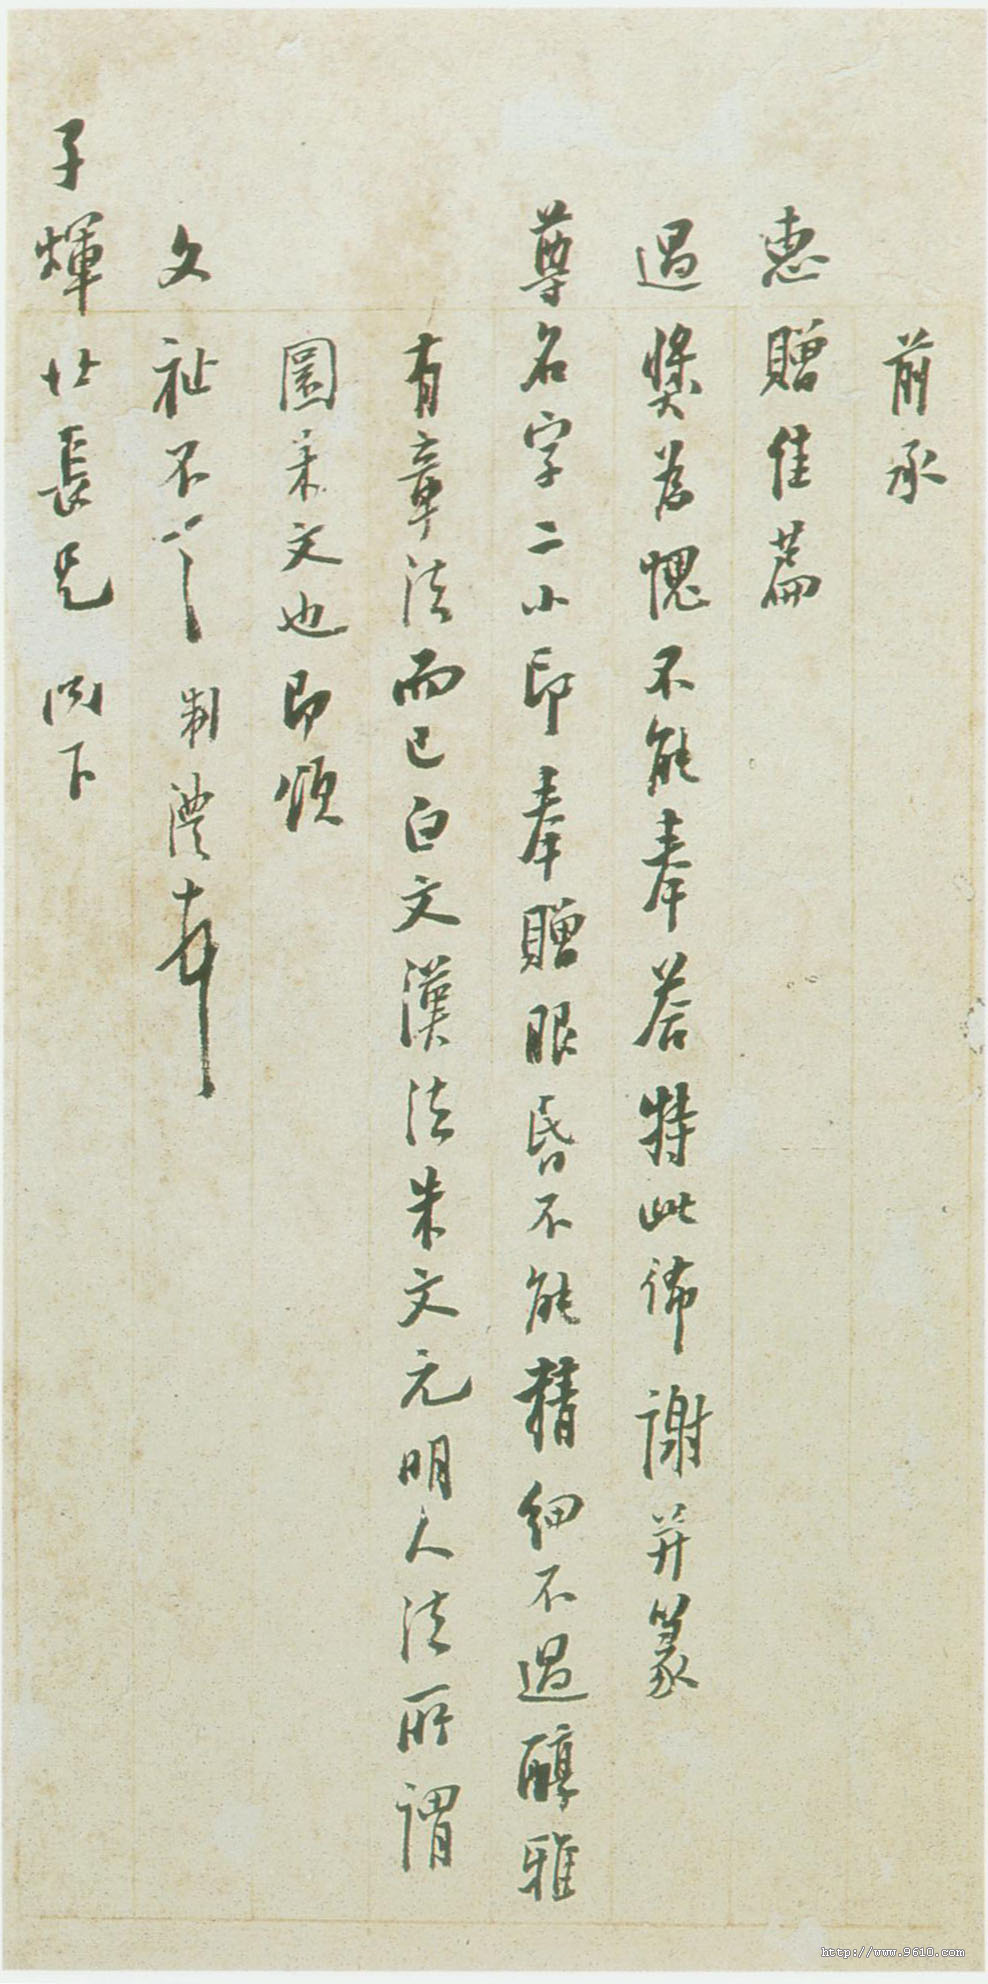 前承
惠贈佳篇
過獎為愧不能奉荅特此佈謝并篆
尊名字二小印奉贈眼昏不能精細不過醇雅
有章法而已白文漢法朱文元明人法所謂
圜朱文也即頌
文祉不 制澧
子煇 長兄 閣下
http://www.9610.com